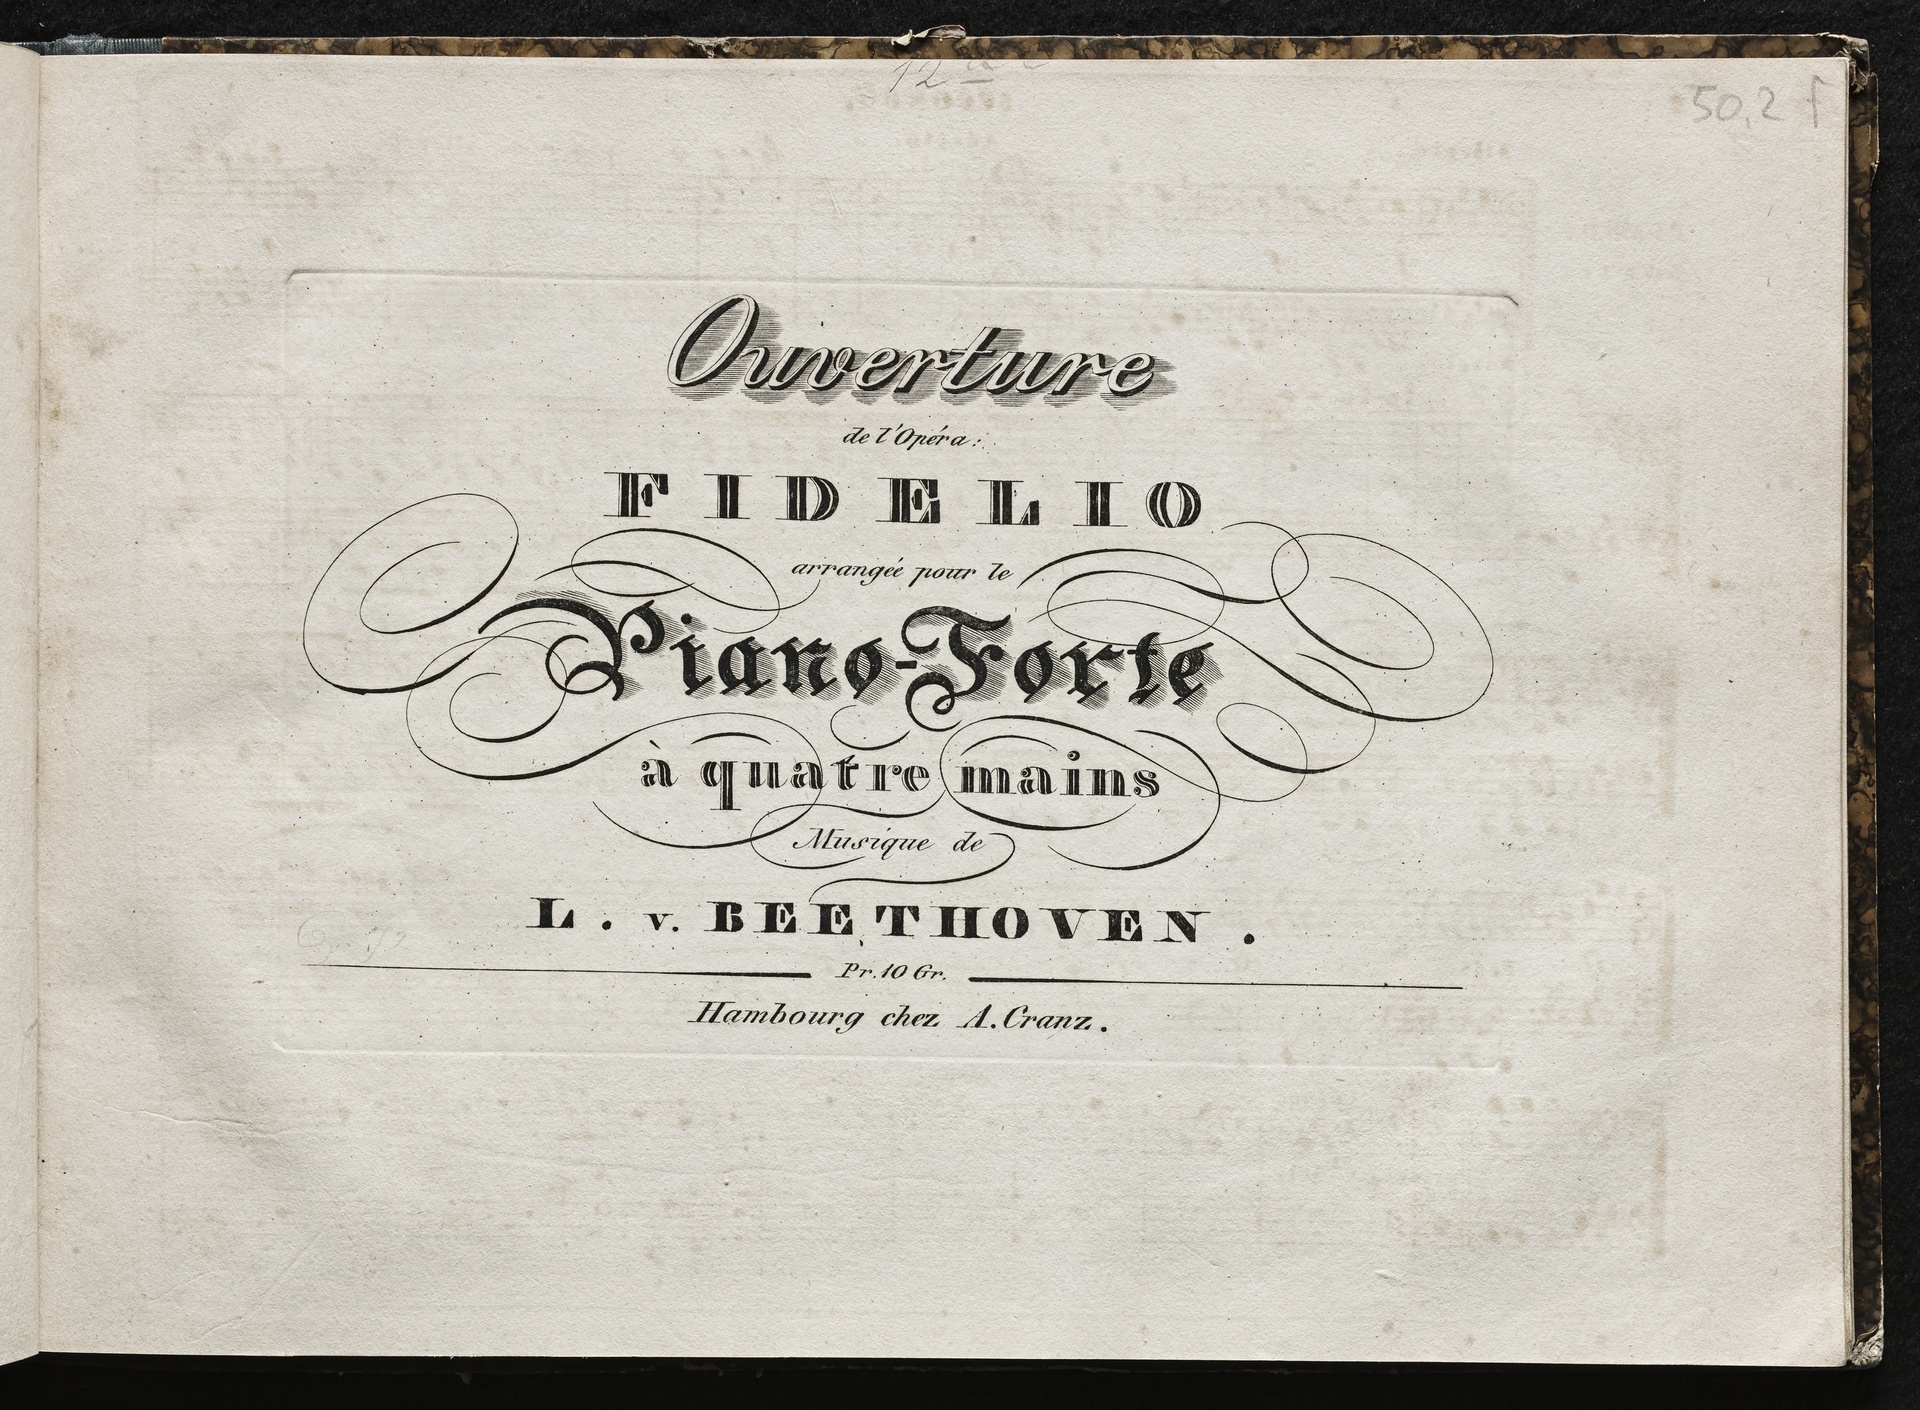 50,2 f
Ouverture
de l'Opéra:
FIDELIO
arrangée pour le
Piano-Forte
à quatre mains
Musique de
L. v. BEETHOVEN.
Pr. 10 Gr.
Hambourg chez A. Cranz.